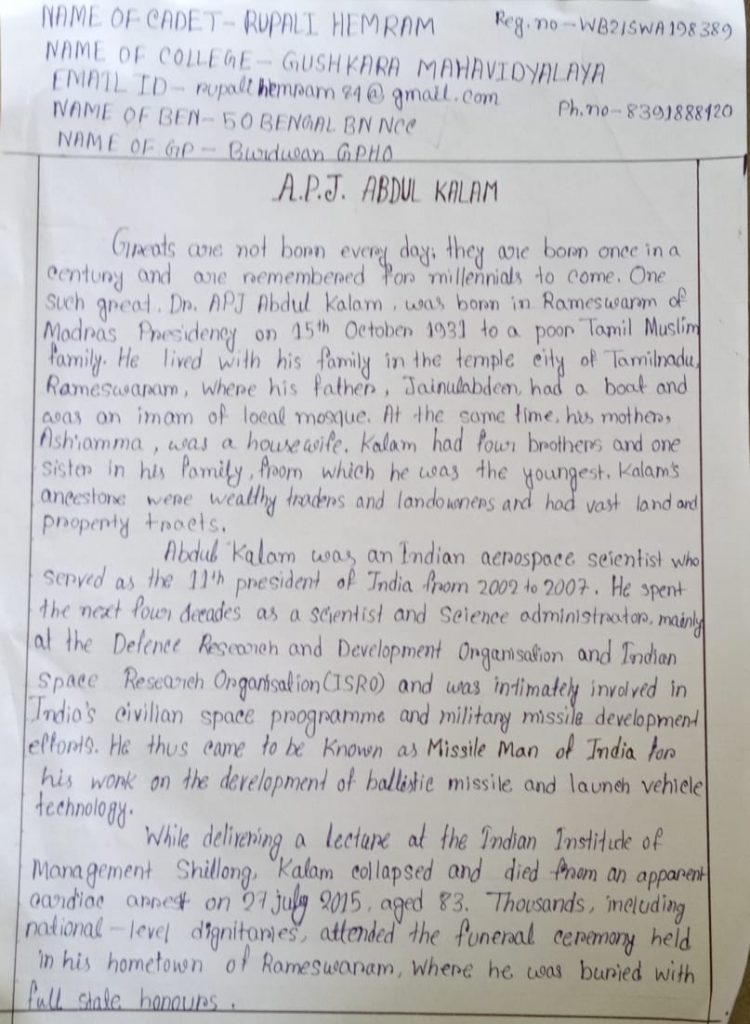 NAME OF CADET - RUPALI HEMRAM Reg. no - WB21SWA198389
NAME OF COLLEGE - GUSHKARA MAHAVIDYALAYA
EMAIL ID - rupalihemram84@gmail.com
NAME OF BEN - 50 BENGAL BN NCC Ph.no - 8391888420
NAME OF GP - Burdwan GPHQ
A.P.J. ABDUL KALAM
Greats are not born every day; they are born once in a
century and are remembered for millennials to come. One
such great, Dr. APJ Abdul Kalam, was born in Rameswarm of
Madras Presidency on 15th October 1931 to a poor Tamil Muslim
family. He lived with his family in the temple city of Tamilnadu,
Rameswaram, where his father, Jainulabdeen, had a boat and
was an imam of local mosque. At the same time, his mother,
Ashiamma, was a housewife. Kalam had four brothers and one
sister in his family, from which he was the youngest. Kalam's
ancestore were wealthy traders and landowners and had vast land and
property tracts.
Abdul Kalam was an Indian aerospace scientist who
served as the 11th president of India from 2002 to 2007. He spent
the next four decades as a scientist and Science administrator, mainly
at the Defence Research and Development Organisation and Indian
Space Research Organisation (ISRO) and was intimately involved in
India's civilian space programme and military missile development
efforts. He thus came to be known as Missile Man of India for
his work on the development of ballistic missile and launch vehicle
technology.
While delivering a lecture at the Indian Institute of
Management Shillong, Kalam collapsed and died from an apparent
cardiac arrest on 27 july 2015, aged 83. Thousands, including
national-level dignitaries, attended the funeral ceremony held
in his hometown of Rameswaram, where he was buried with
full state honours.